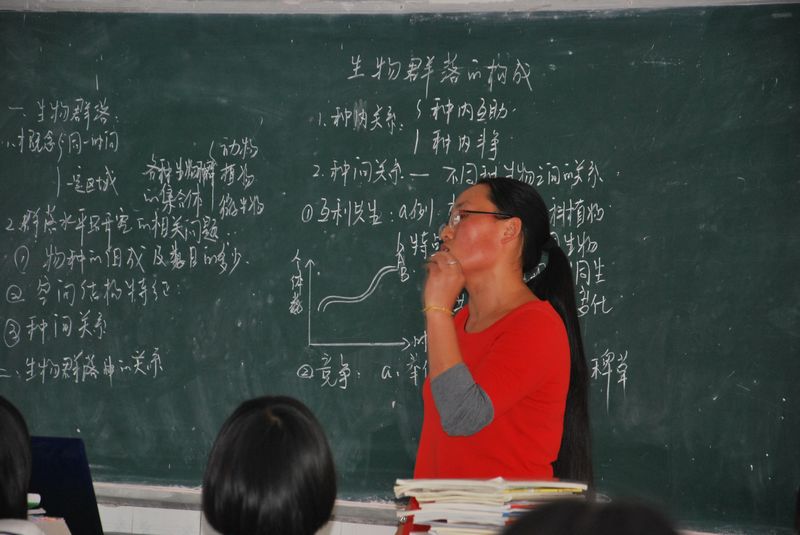 生物群落的构成
一.生物群落:
1.概念 同一时间
一定区域
各种生物种群
的集合体
动物
植物
微生物
2.群落水平研究的相关问题
① 物种的组成及数目的多少
② 空间结构特征:
③ 种间关系
二.生物群落中的关系
1.种内关系: 种内互助
种内斗争
2.种间关系— 不同种生物之间的关系
①互利共生: a.例: 科植物
b.特点
生物
同生
个体数
②竞争: a: 稗草